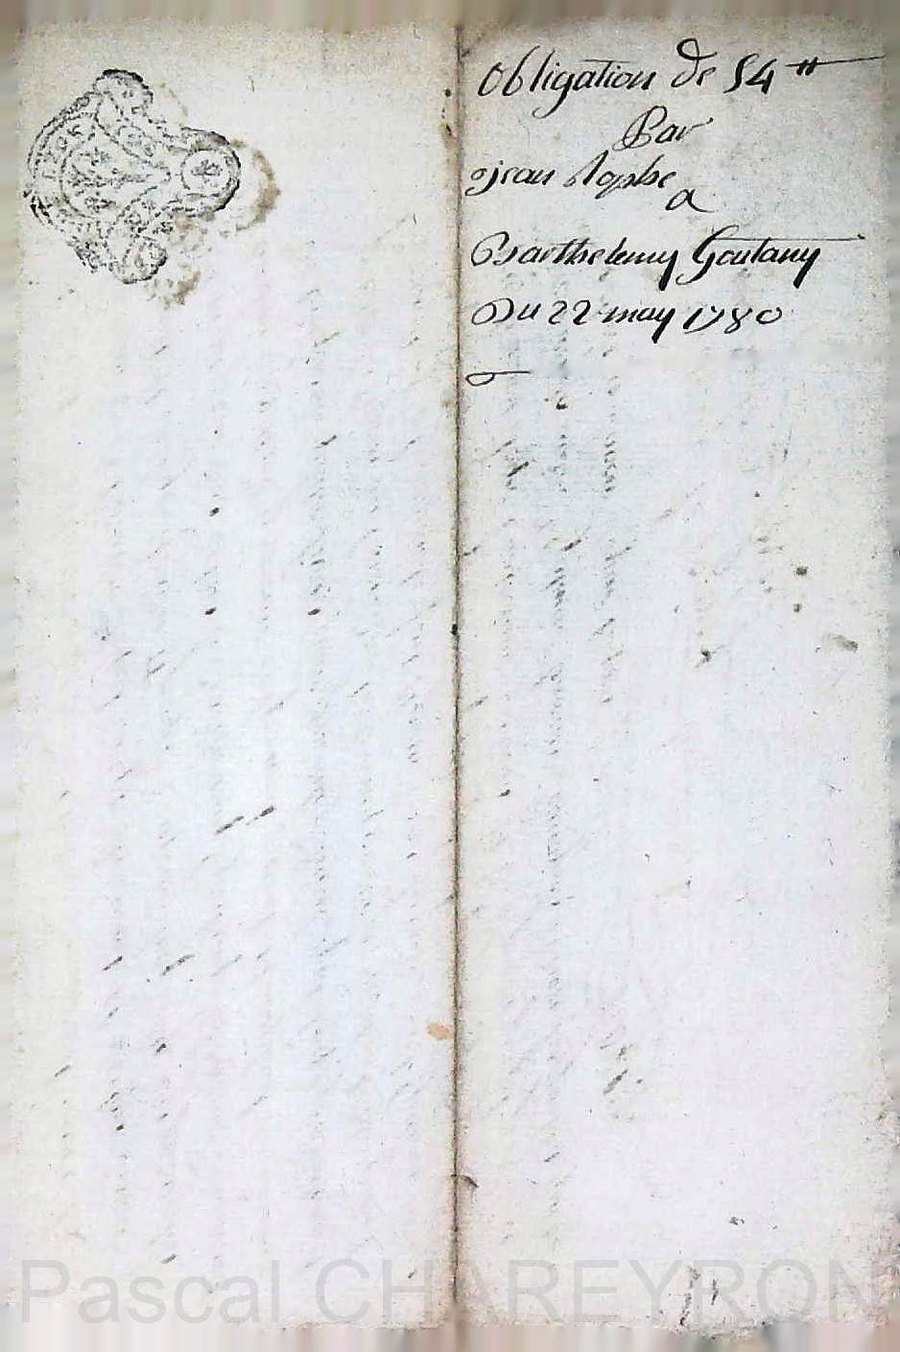 obligation de 54 ₶
Par
jean
a
Barthelemy Goutany
Du 22 may 1780
Pascal CHAREYRON